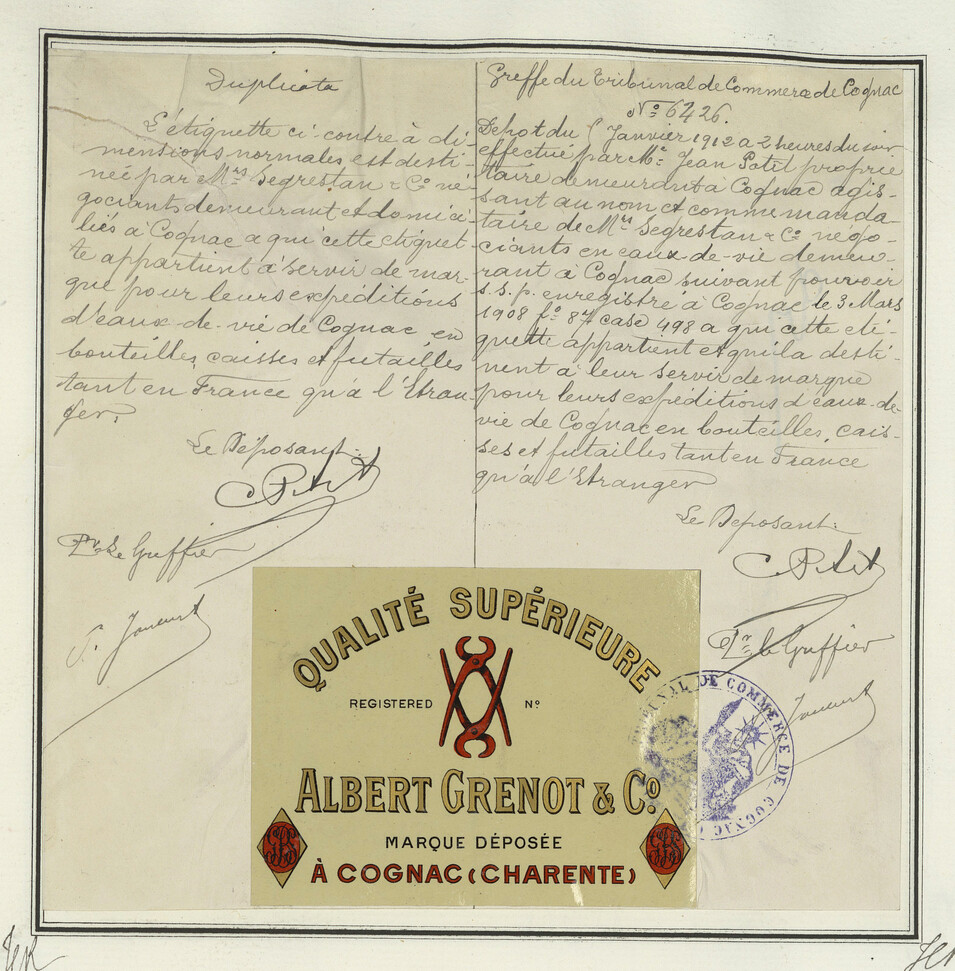 Duplicata
L'étiquette ci-contre à di-
mensions normales est desti-
née par Mrs Segrestan & Co né-
gociants demeurant et domici-
liés à Cognac a qui cette etiquet-
te appartient à servir de mar-
que pour leurs expéditions
d'eaux-de-vie de Cognac en
bouteilles, caisses et futailles
tant en France qu'à l'Etran-
ger.
Le Déposant:
Pr Le Greffier
Greffe du Tribunal de Commerce de Cognac
No 6426.
Dépot du Janvier 1912 a 2 heures du soir
effectué par Mr Jean Petit proprié
taire demeurant à Cognac agis-
sant au nom et comme manda-
taire de Mrs Segrestan & Co négo-
ciants en eaux-de-vie demeu-
rant à Cognac suivant pouvoir
s.s.p. enregistré à Cognac le 3 Mars
1908 fo 87 case 498 a qui cette eti-
quette appartient et qui la desti-
nent à leur servir de marque
pour leurs expeditions d'eaux-de-
vie de Cognac en bouteilles, cais-
ses et futailles tant en France
qu'à l'Etranger
Le Deposant:
Pr le Greffier
QUALITÉ SUPÉRIEURE
REGISTERED No
ALBERT GRENOT & Co.
MARQUE DÉPOSÉE
À COGNAC (CHARENTE)
TRIBUNAL DE COMMERCE DE COGNAC